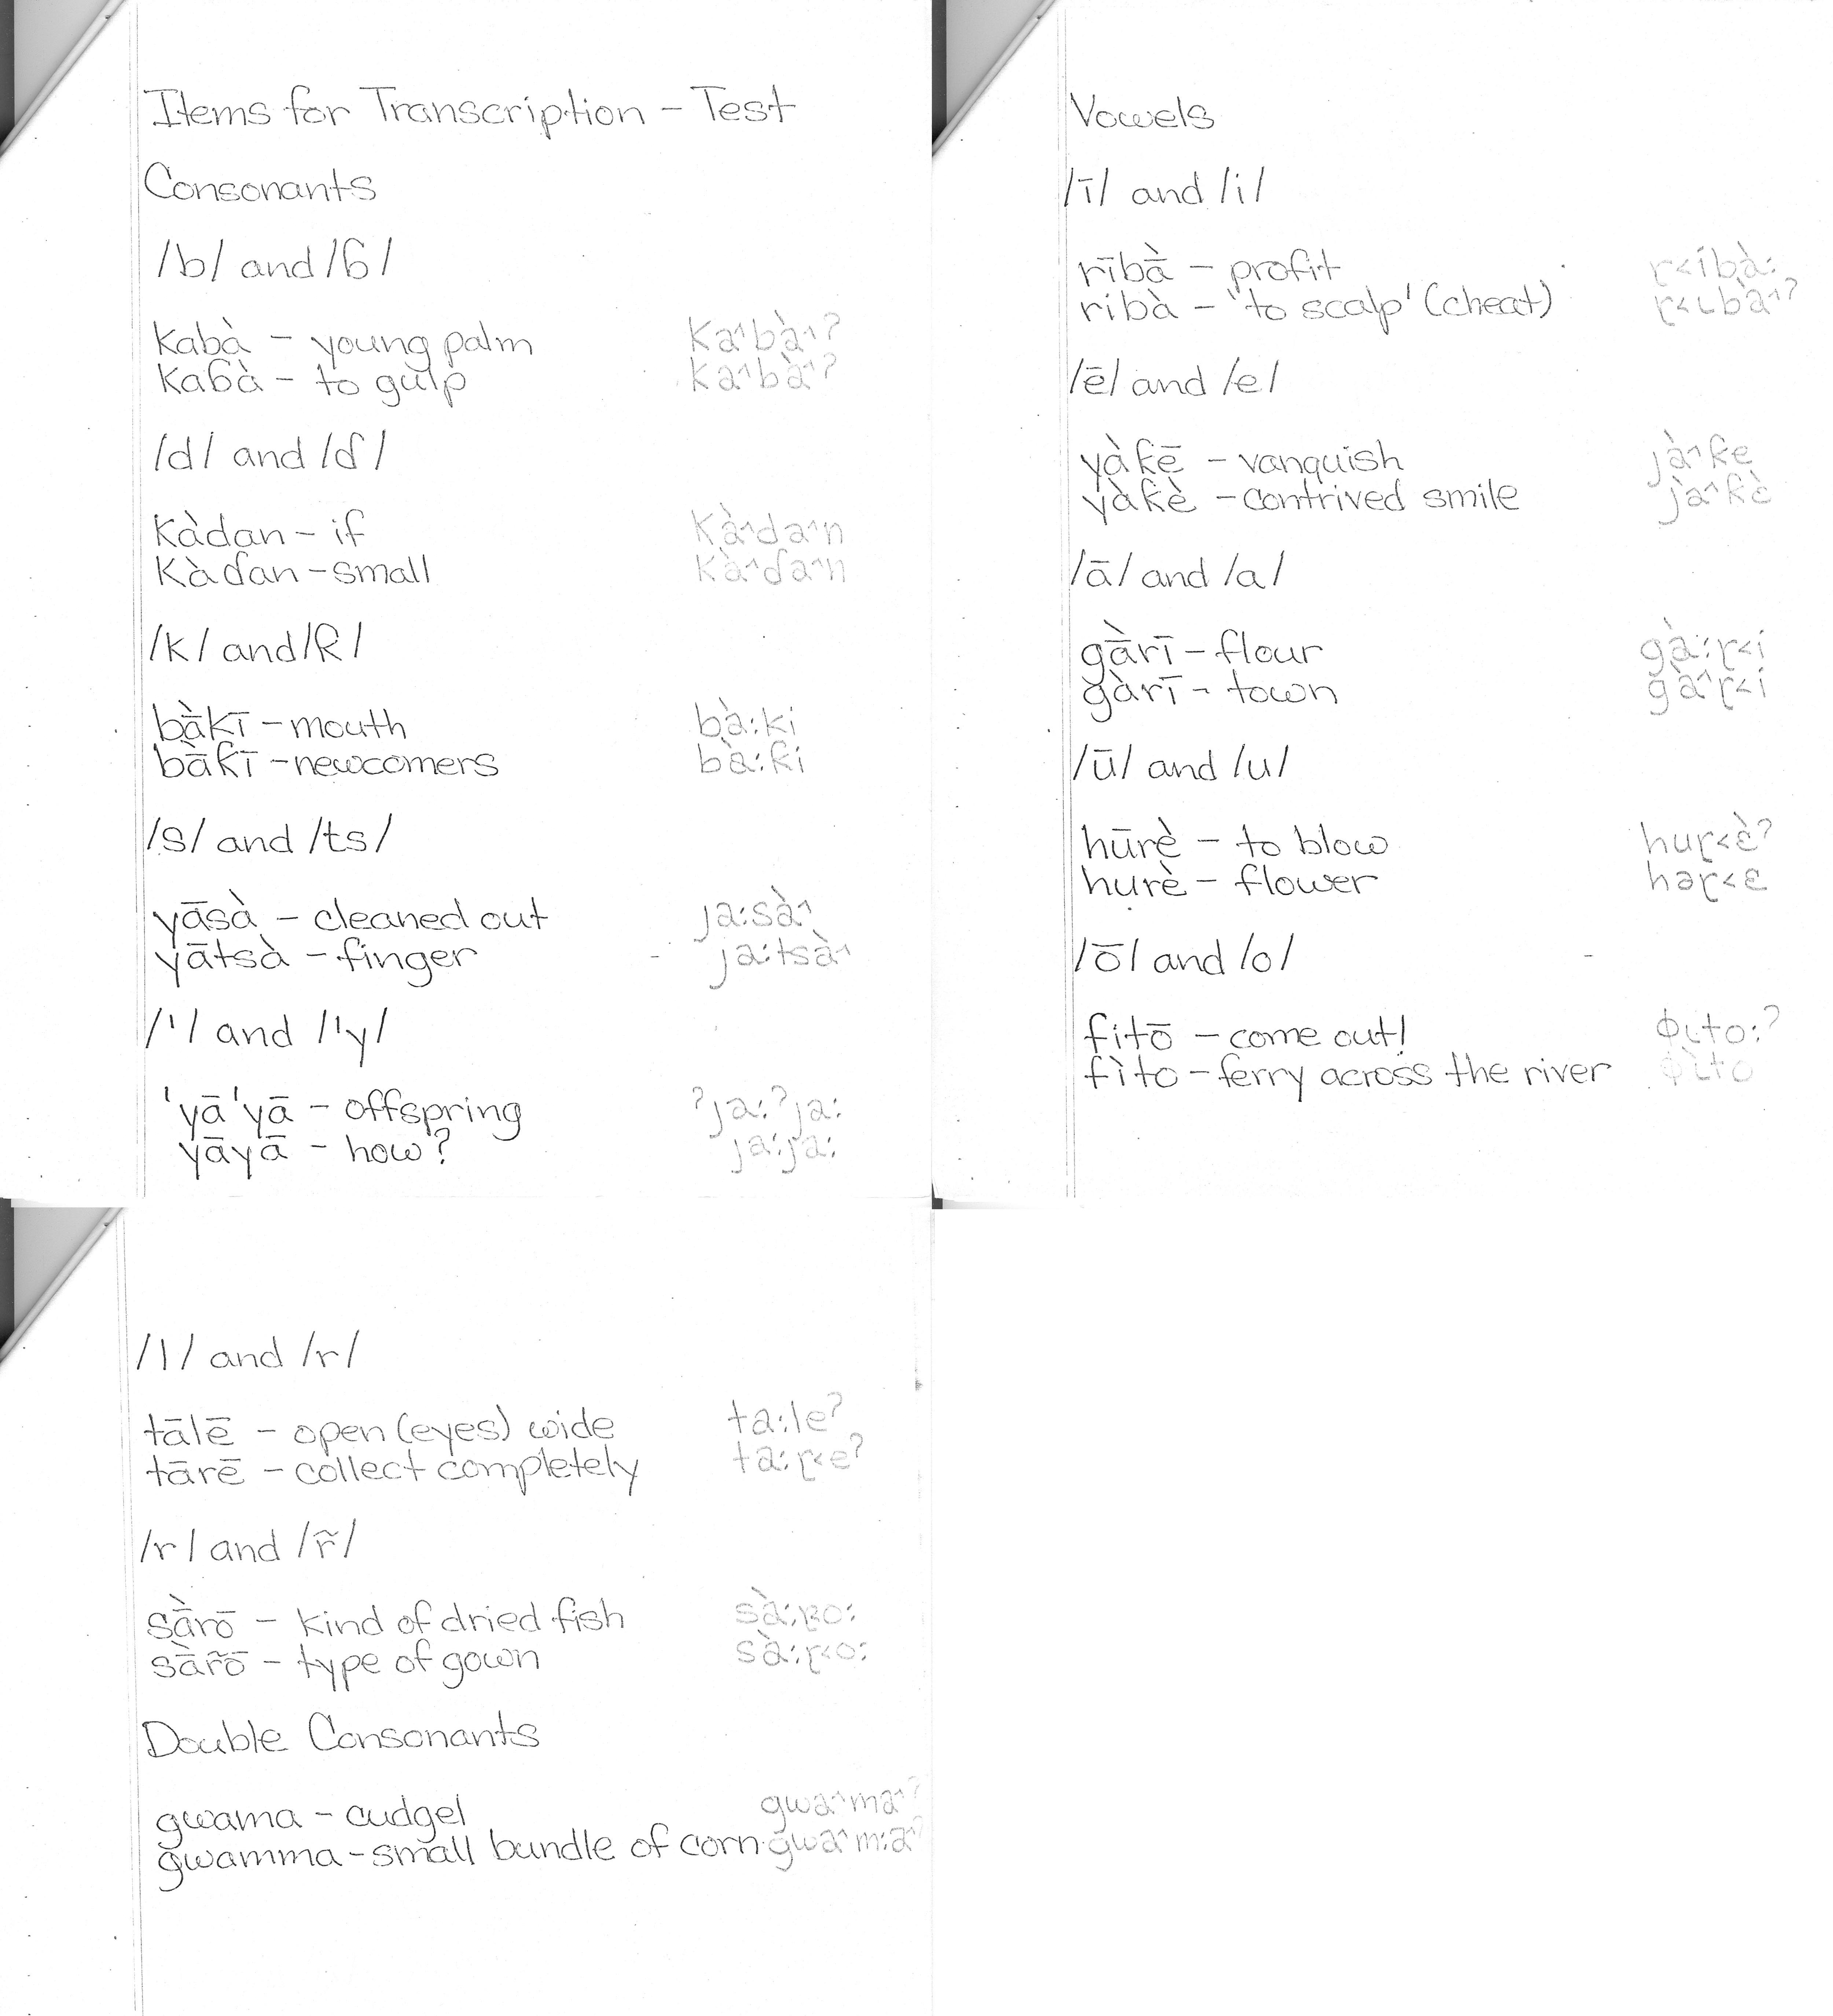 Items for Transcription – Test
Consonants
/b/ and /ɓ/
kabà – young palm kaˆbàˆ?
kaɓà – to gulp kaˆbàˆ?
/d/ and /ɗ/
kàdan – if kàˆdaˆn
kàɗan – small kàˆɗaˆn
/k/ and /ƙ/
bā̀kī – mouth bà:ki
bā̀ƙī – newcomers bà:ƙi
/s/ and /ts/
yāsà – cleaned out ja:sàˆ
yātsà – finger ja:tsàˆ
/'/ and /'y/
'yā'yā – offspring ʔja:ʔja:
yāyā – how? ja:ja:
Vowels
/ī/ and /i/
rībā̀ – profit
ribà – 'to scalp' (cheat)
/ē/ and /e/
yàƙē – vanquish jàˆƙe
yàƙè – contrived smile jàˆƙè
/ā/ and /a/
gā̀rī – flour gà:ɽ<i
gàrī – town gàˆɽ<i
/ū/ and /u/
hūrè – to blow huɽ<è?
hurè – flower həɽ<ɛ
/ō/ and /o/
fitō – come out! ɸɩto:?
fìto – ferry across the river ɸɩ̀to
/l/ and /r/
tālē – open (eyes) wide ta:le?
tārē – collect completely ta:ɽ<e?
/r/ and /r̃/
sā̀rō – kind of dried fish
sā̀r̃ō – type of gown sà:ɽ<o:
Double Consonants
gwama – cudgel gwaˆmaˆ?
gwamma – small bundle of corn gwaˆm:aˆ?